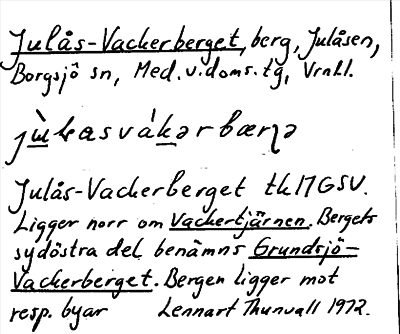 Julås-Vackerberget, berg, Julåsen,
Borgsjö sn, Med. v. doms. tg, Vrnl.
Julås-Vackerberget tk 17 GSV.
Ligger norr om Vackertjärnen. Bergets
sydöstra del benämns Grundsjö-
Vackerberget. Bergen ligger mot
resp. byar Lennart Thunvall 1972.